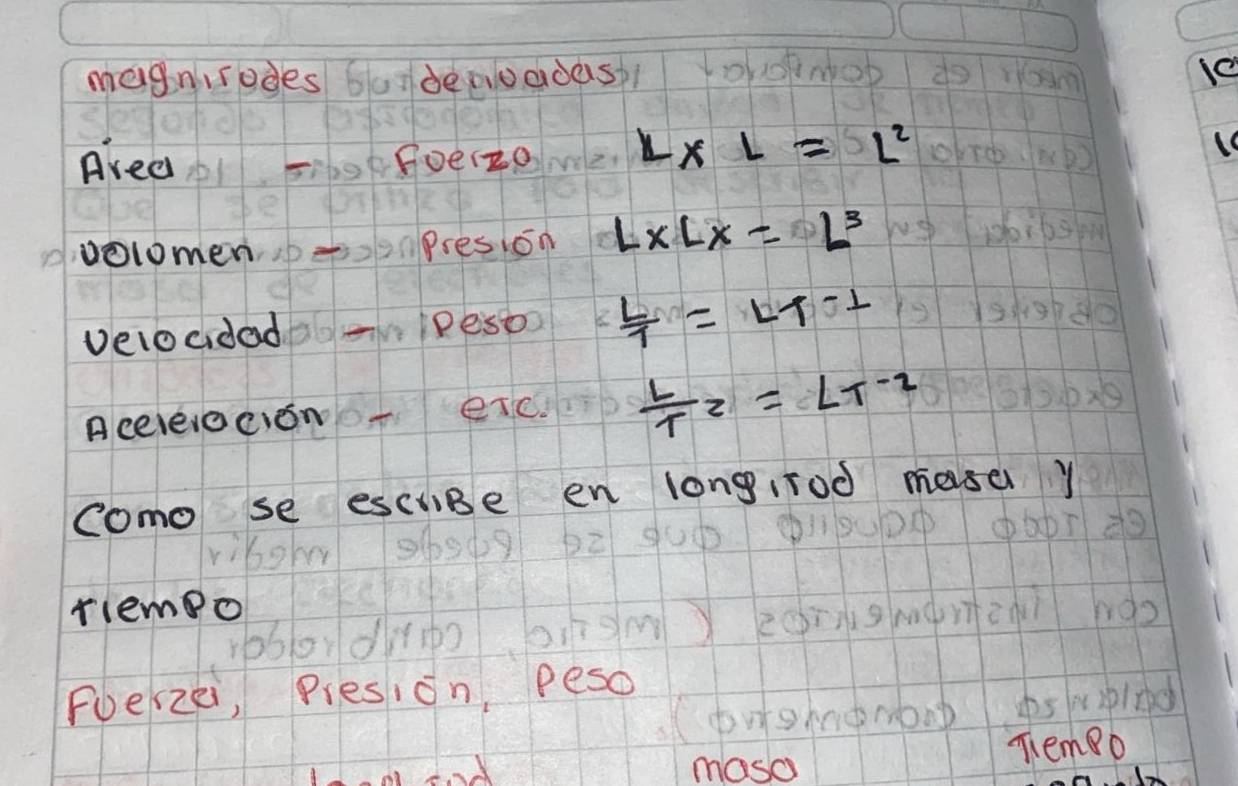 magnitudes derivadas
Área - Fuerza L x L = L²
volumen - Presión L x L x = L³
velocidad - Peso L/T = LT-1
Aceleración - etc. L/T 2 = LT-2
Como se escribe en longitud masa y
tiempo
Fuerza, Presión, Peso
masa Tiempo